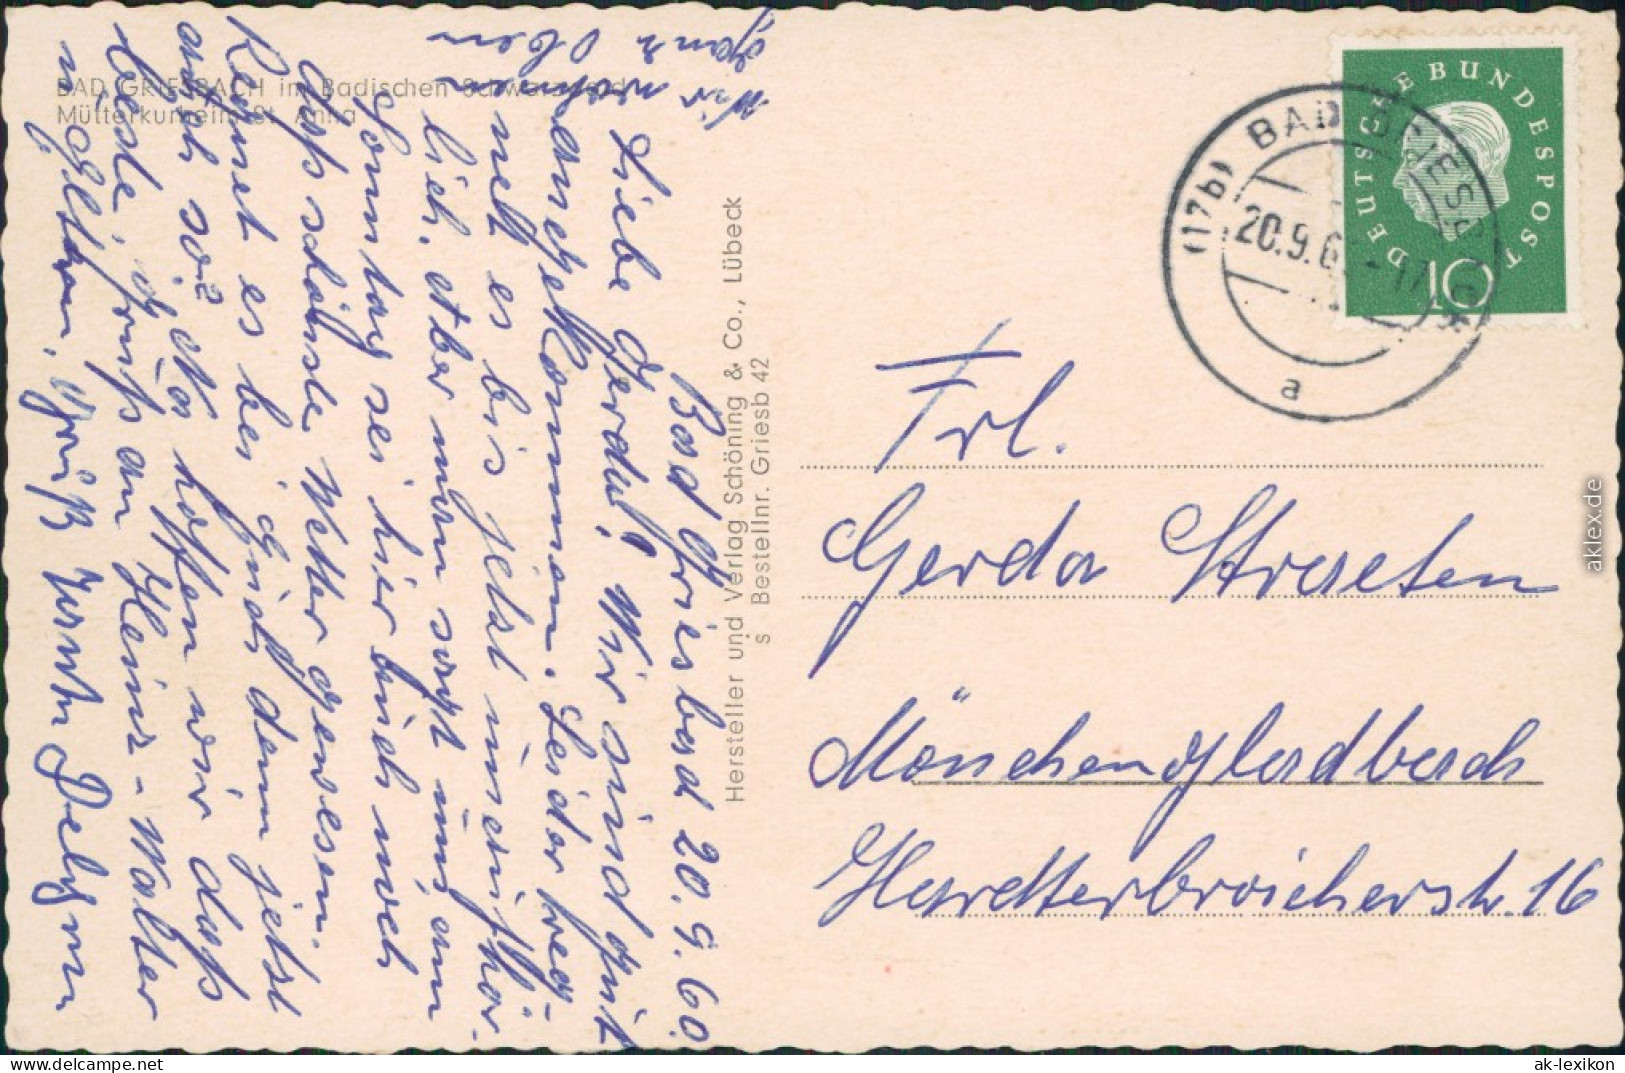 BAD GRIESBACH im Badischen Schwarzwald
Mütterkurheim St. Anna
Wir wohnen
ganz oben
Bad Griesbad 20.9.60.
Liebe Gerda! Wir sind gut
angekommen. Leider reg-
net es bis jetzt unaufhör-
lich. Aber man sagt uns am
Sonntag sei hier auch noch
das schönste Wetter gewesen.
Regnet es bei Euch denn jetzt
auch so? Na hoffen wir das
beste. Gruß an Heinz-Walter
u. Eltern. Gruß
Hersteller und Verlag Schöning & Co., Lübeck
S Bestellnr. Griesb 42
DEUTSCHE BUNDESPOST
10
(17b) BAD GRIESBACH
20.9.60-17
a
Frl.
Gerda Straeten
Mönchengladbach
Hardterbroicherstr. 16
aklex.de
ak-lexikon